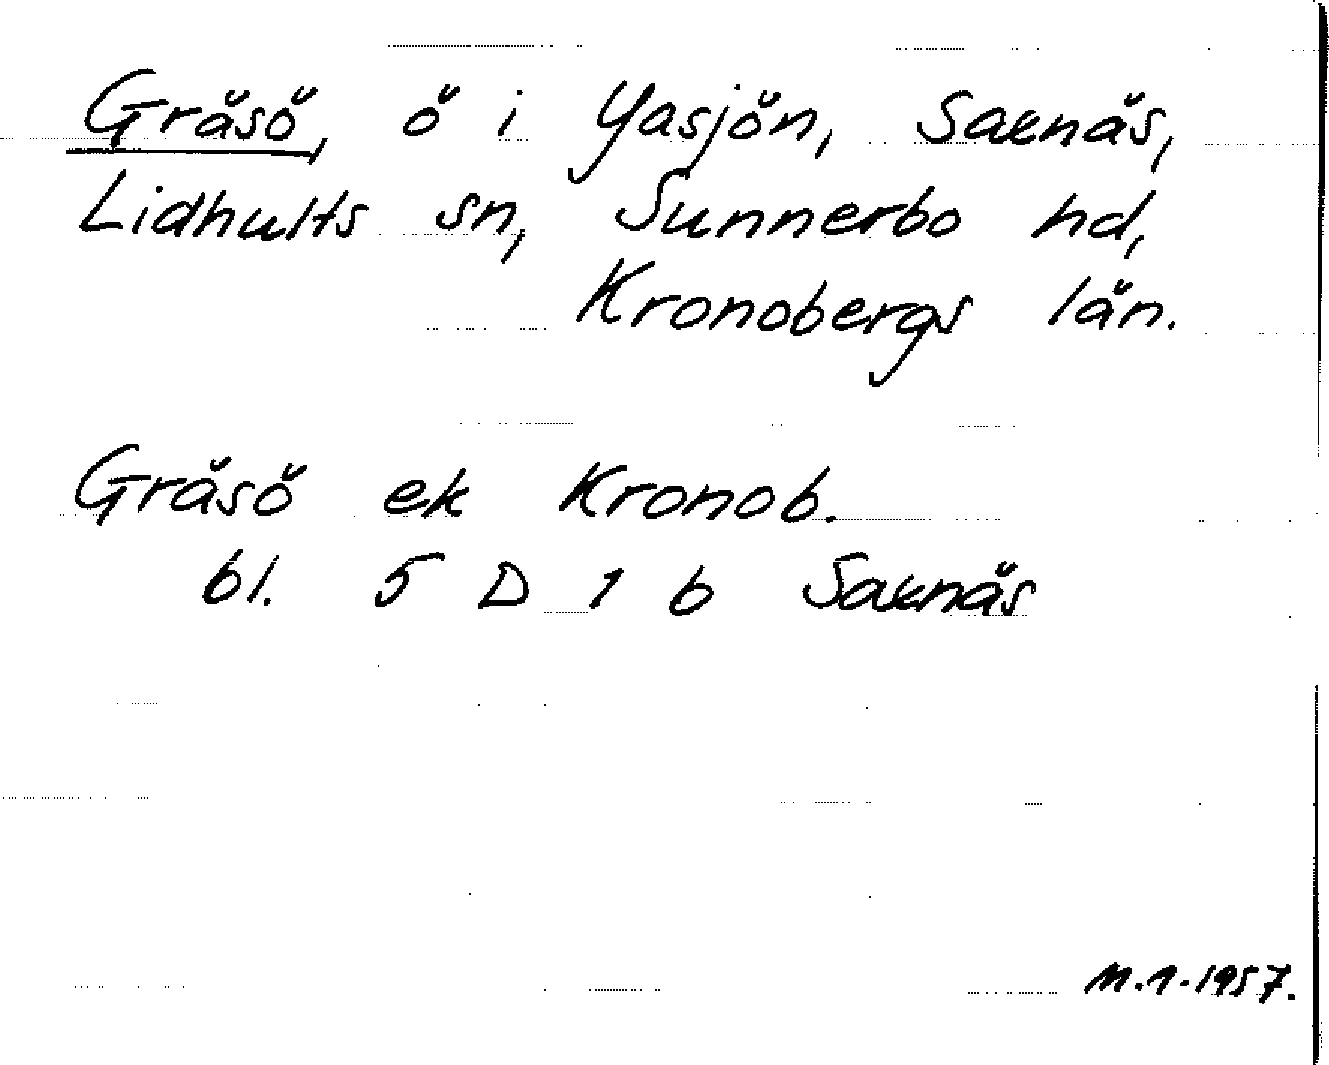 Gräsö, ö i Yasjön, Saxnäs,
Lidhults sn, Sunnerbo hd,
Kronobergs län.
Gräsö ek Kronob.
bl. 5 D 1 b Saxnäs
1957.